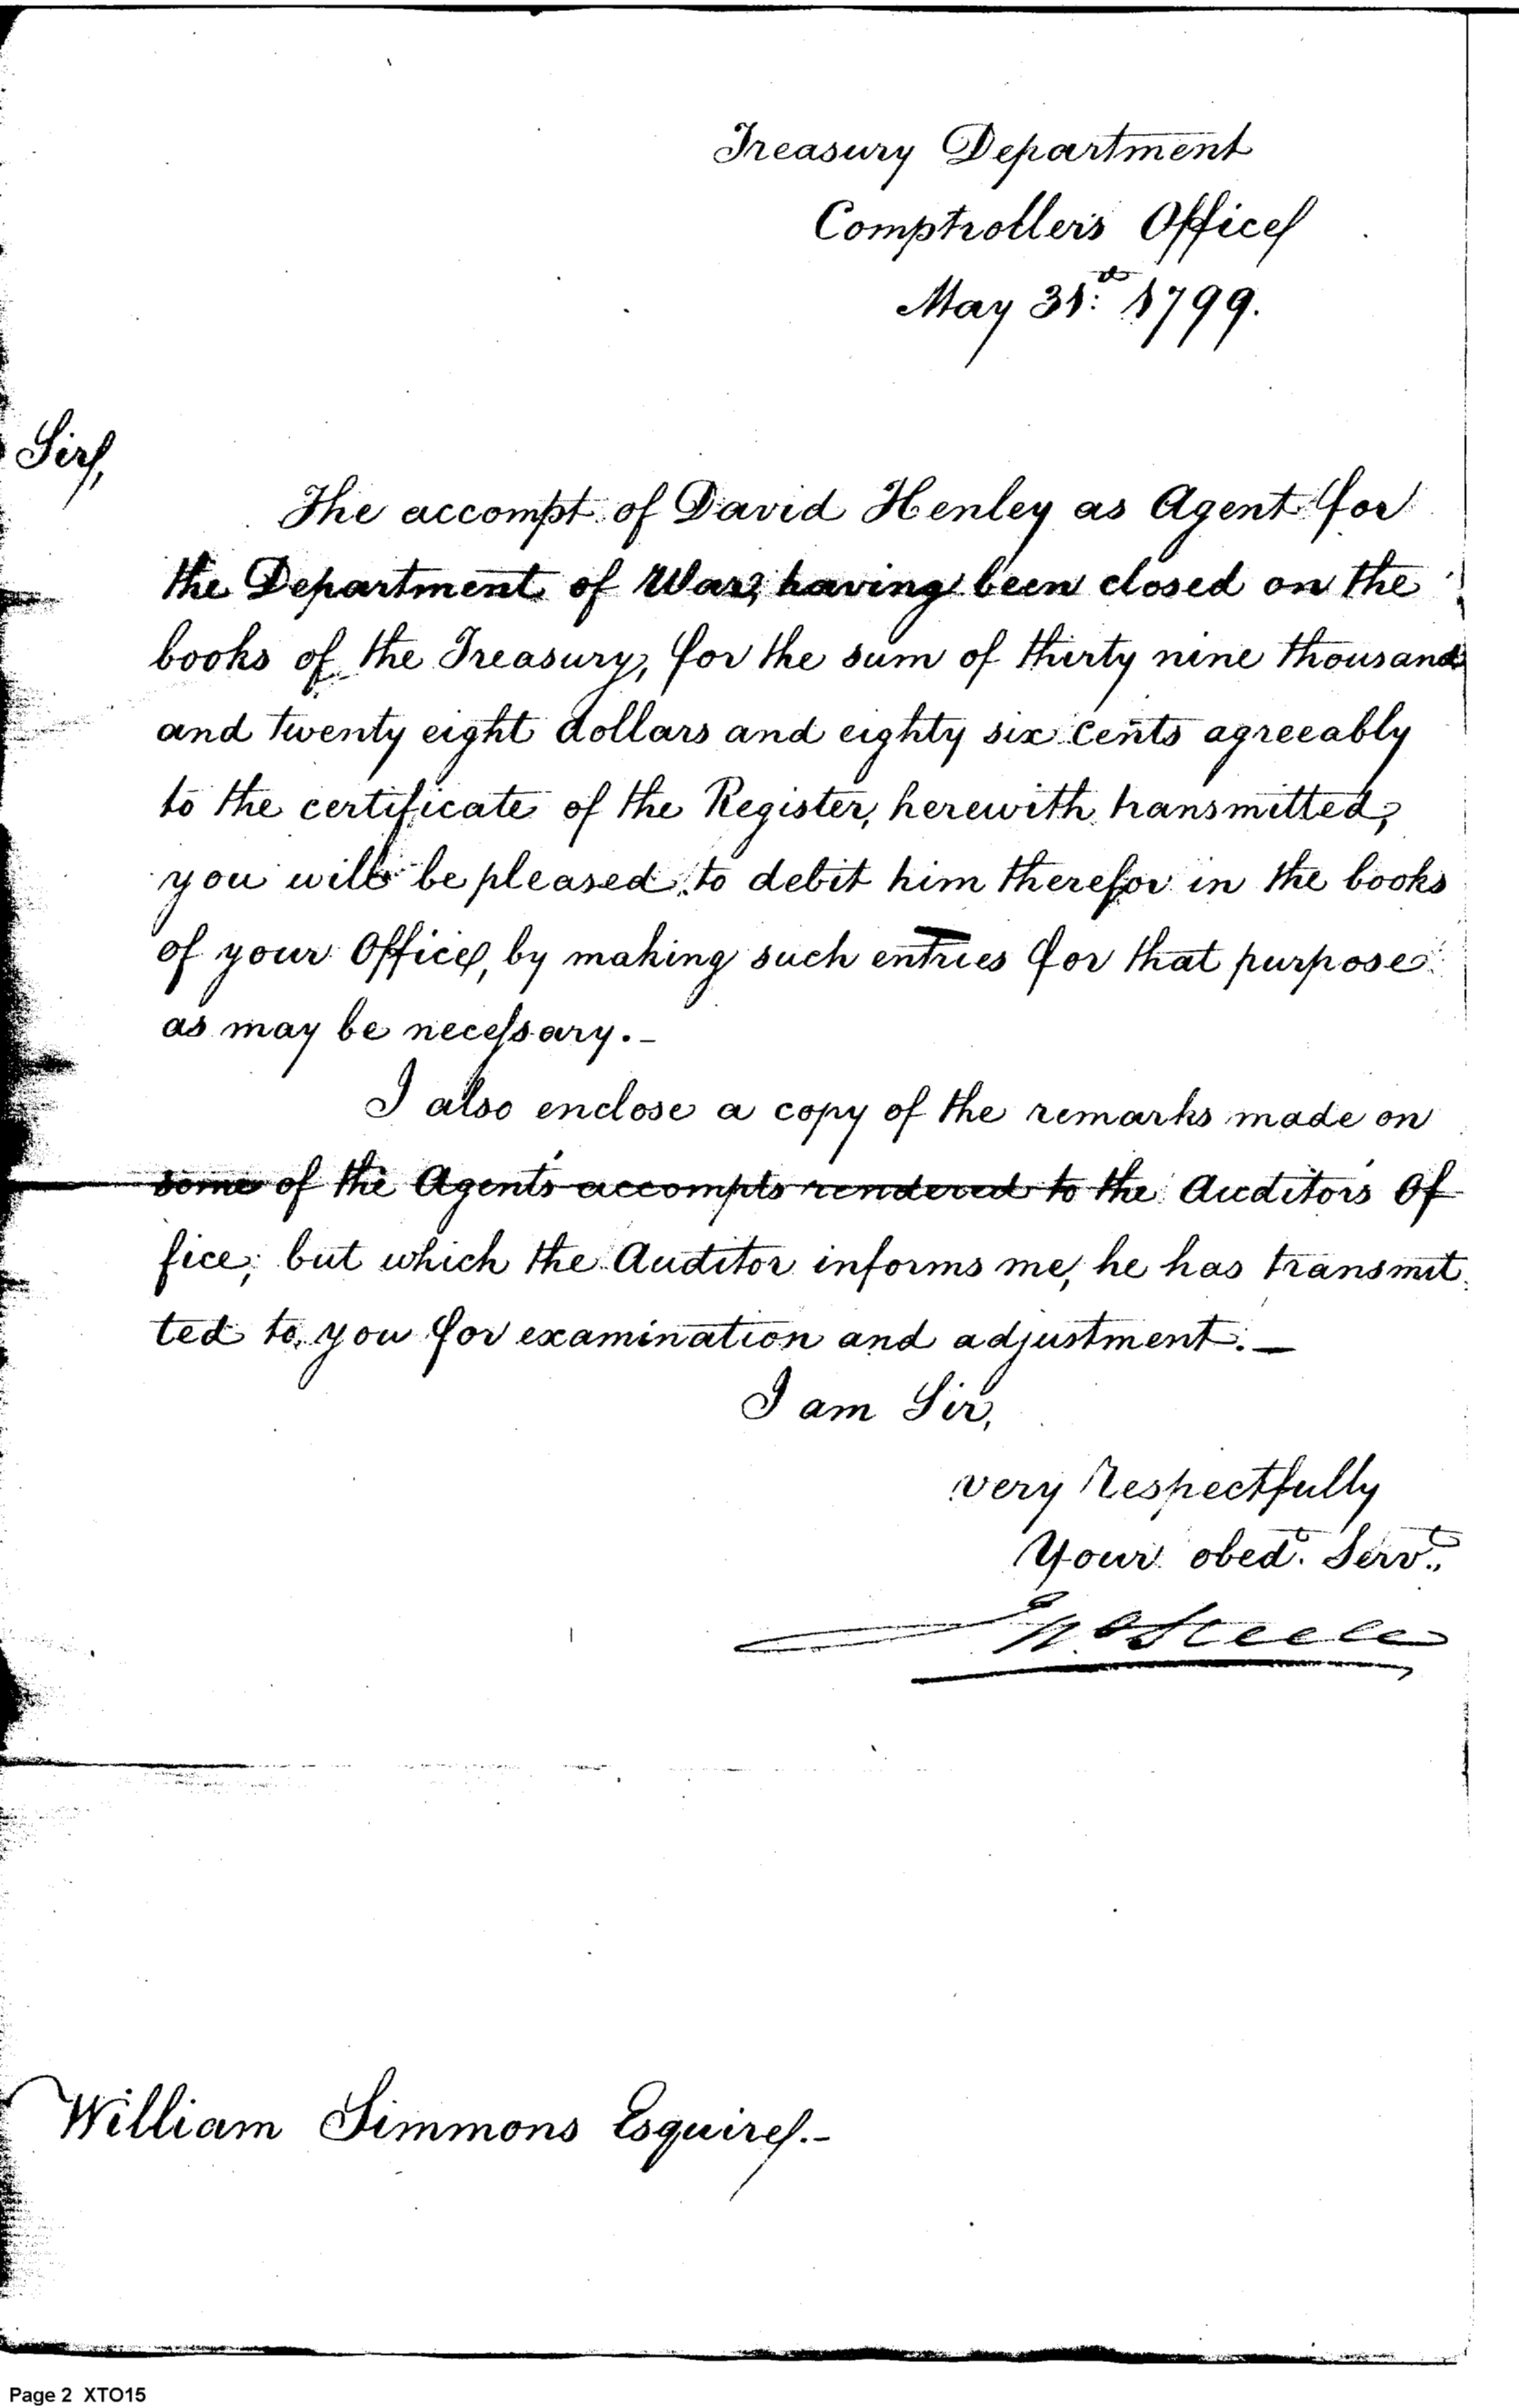 Treasury Department
Comptroller's Office
May 31st: 1799.
Sir,
The accompt of David Henley as Agent for
the Department of War, having been closed on the
books of the Treasury, for the sum of thirty nine thousand
and twenty eight dollars and eighty six cents agreeably
to the certificate of the Register, herewith transmitted,
you will be pleased to debit him therefor in the books
of your Office, by making such entries for that purpose
as may be necessary.-
I also enclose a copy of the remarks made on
some of the Agent's accompts rendered to the Auditor's Of
fice; but which the Auditor informs me, he has transmit
ted to you for examination and adjustment.-
I am Sir,
very respectfully
Your obedt. Servt.,
Jno Steele
William Simmons Esquire.-
Page 2 XTO15